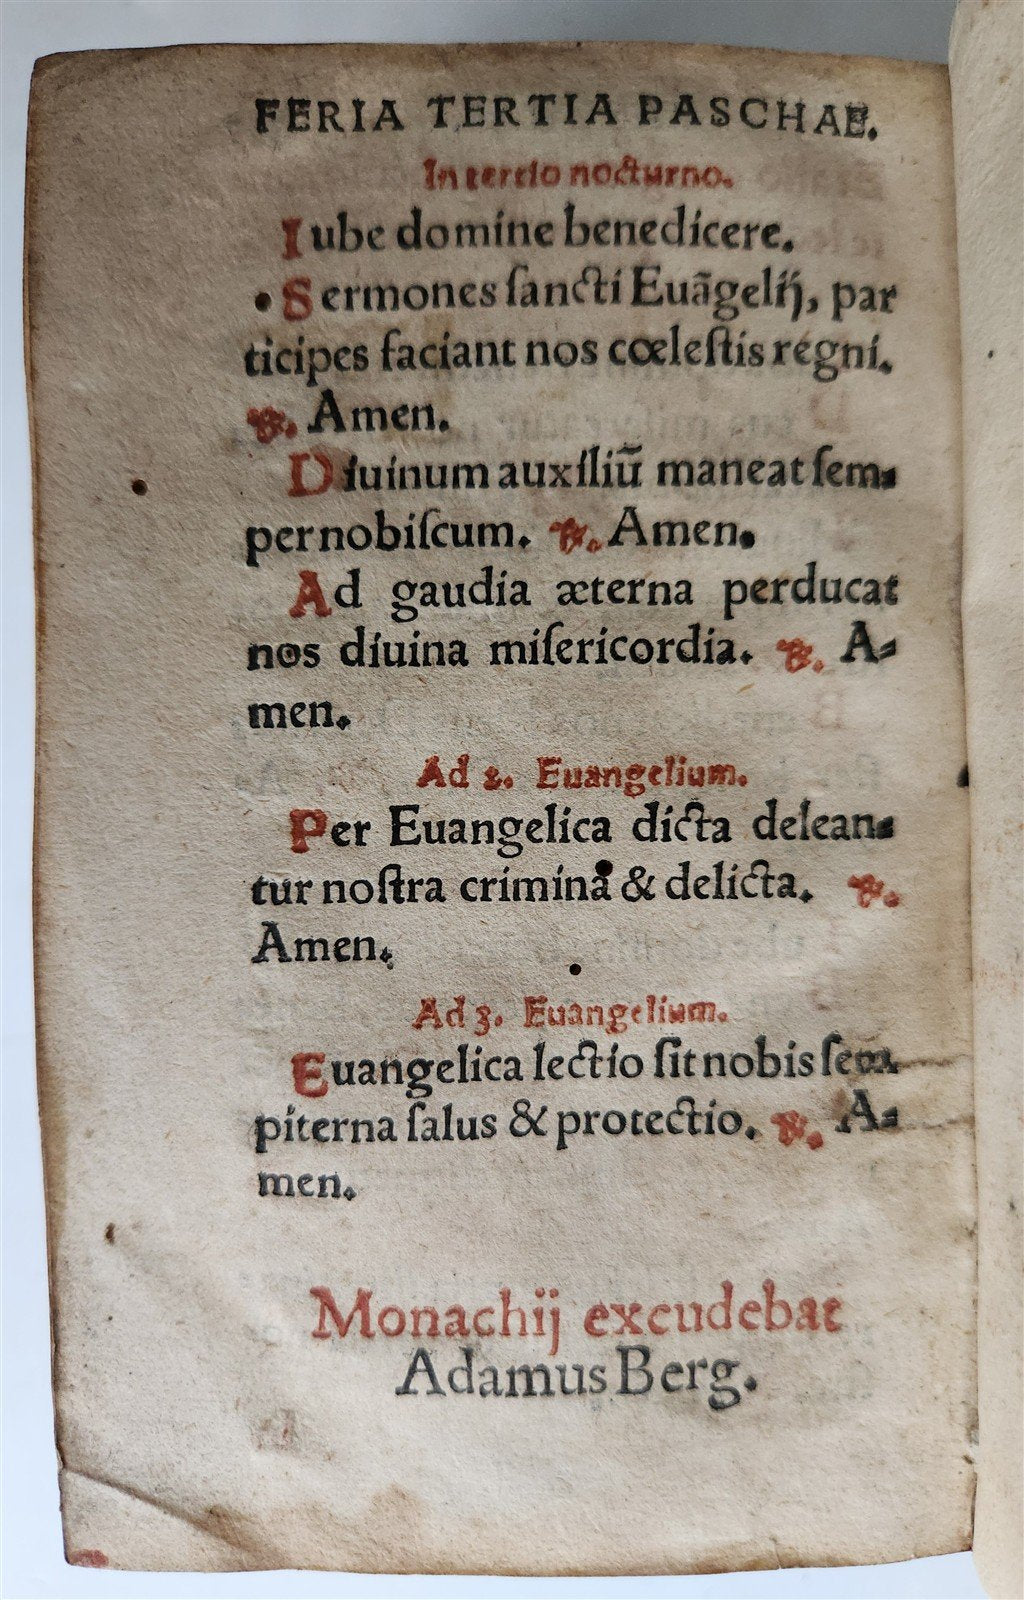 FERIA TERTIA PASCHAE.
In tertio nocturno.
Iube domine benedicere.
Sermones ſancti Euãgelij, par
ticipes faciant nos cœleſtis regni.
℟. Amen.
Diuinum auxiliũ maneat ſem-
per nobiſcum. ℟. Amen.
Ad gaudia æterna perducat
nos diuina miſericordia. ℟. A-
men.
Ad 2. Euangelium.
Per Euangelica dicta delean-
tur noſtra crimina & delicta. ℟.
Amen.
Ad 3. Euangelium.
Euangelica lectio ſit nobis ſem-
piterna ſalus & protectio. ℟. A-
men.
Monachij excudebat
Adamus Berg.